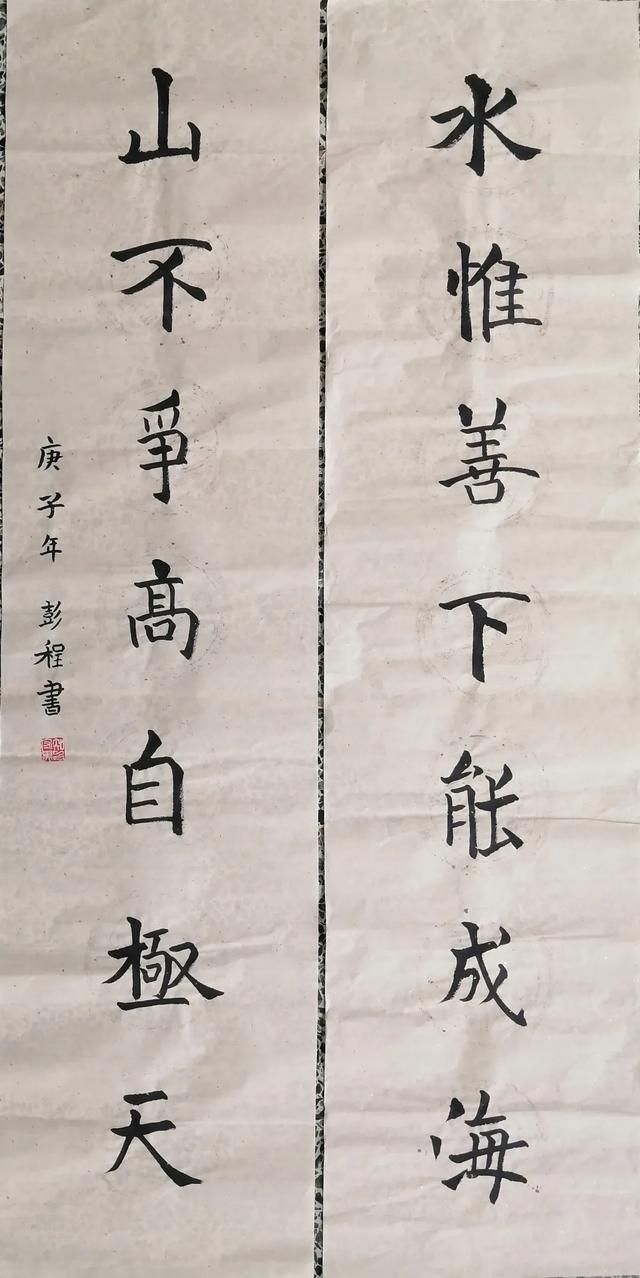 水惟善下能成海
山不爭高自極天
庚子年 彭程書